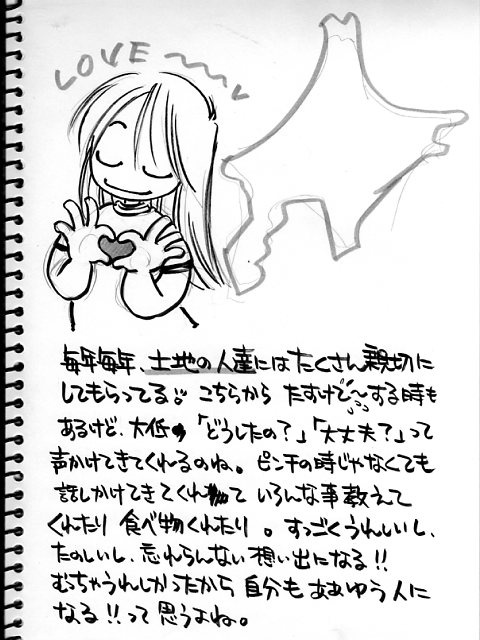 LOVE〜〜
毎年毎年、土地の人達にはたくさん親切に
してもらってる。こちらから たすけて〜する時も
あるけど、大低、「どうしたの?」「大丈夫?」って
声かけてきてくれるのね。ピンチの時じゃなくても
話しかけてきてくれて いろんな事教えて
くれたり 食べ物くれたり。すっごくうれしいし、
たのしいし、忘れらんない想い出になる!!
むちゃうれしかったから 自分も ああゆう人に
なる!!って思うよね。